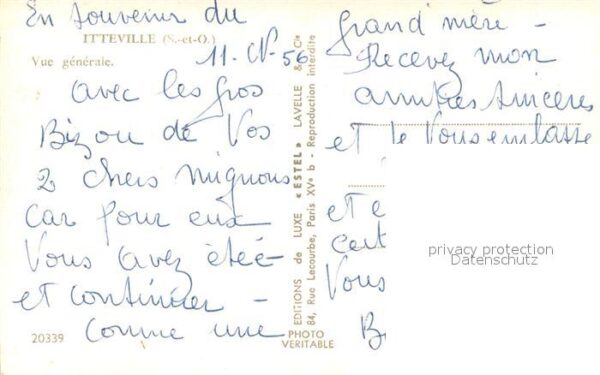 En souvenir du
ITTEVILLE (S.-et-O.)
Vue générale.
11.
56
avec les gros
Bizou de Vos
2 chers mignons
car pour eux
Vous avez étéé
et continuer -
comme une
20339
EDITIONS de LUXE « ESTEL » LAVELLE & Cie
84, Rue Lecourbe, Paris XVe b - Reproduction interdite
PHOTO
VERITABLE
grand'mère -
Recevez mon
sinceres
et je Vous embrasse
et e
Vous
B
privacy protection
Datenschutz